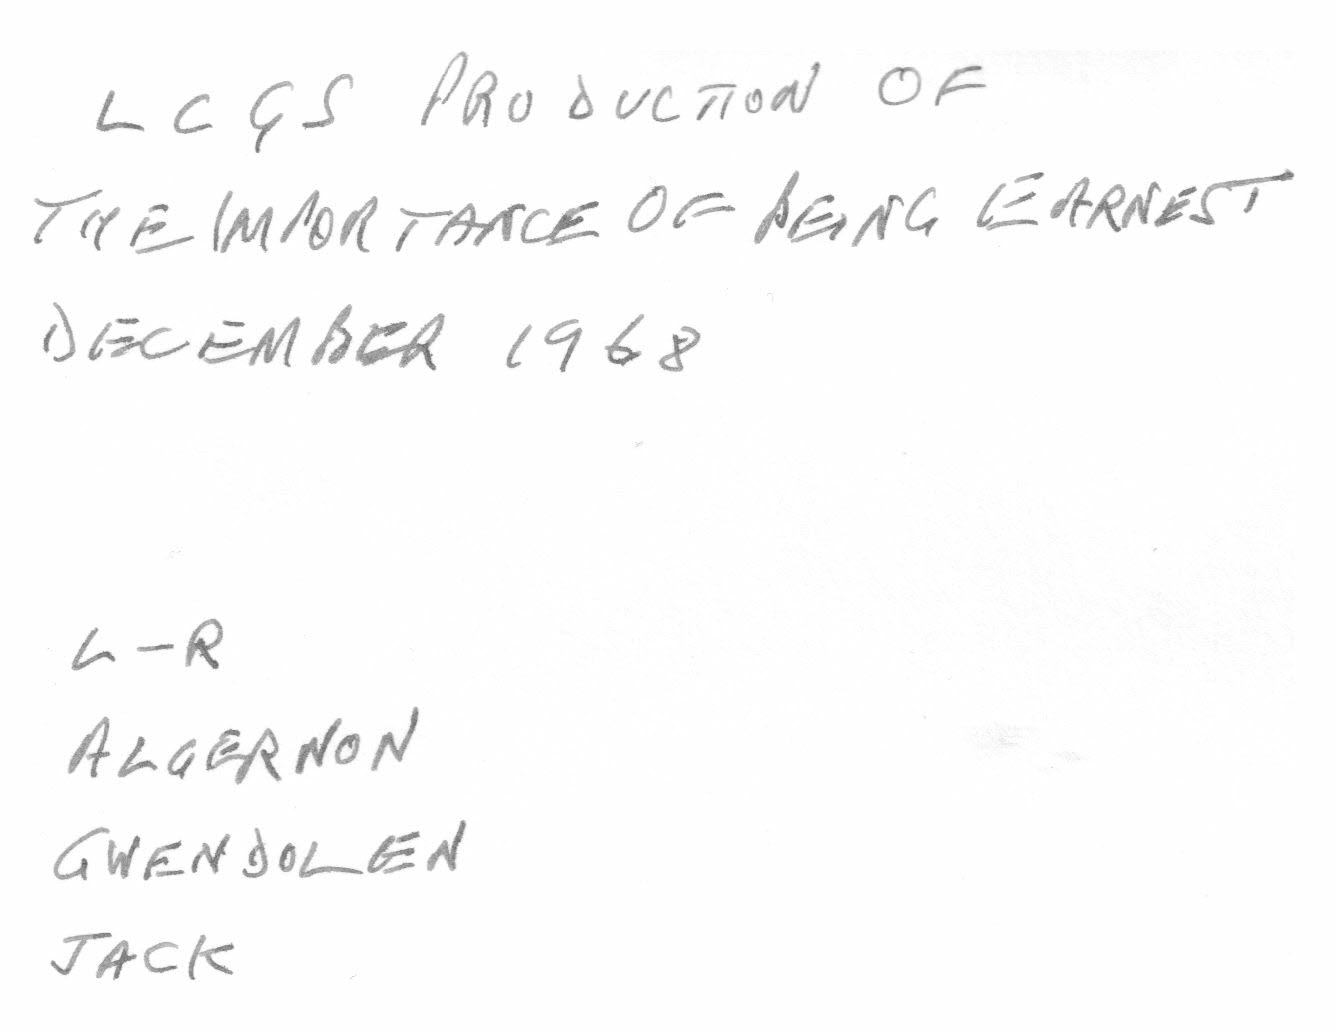 LCGS PRODUCTION OF
THE IMPORTANCE OF BEING EARNEST
DECEMBER 1968
L-R
ALGERNON
GWENDOLEN
JACK